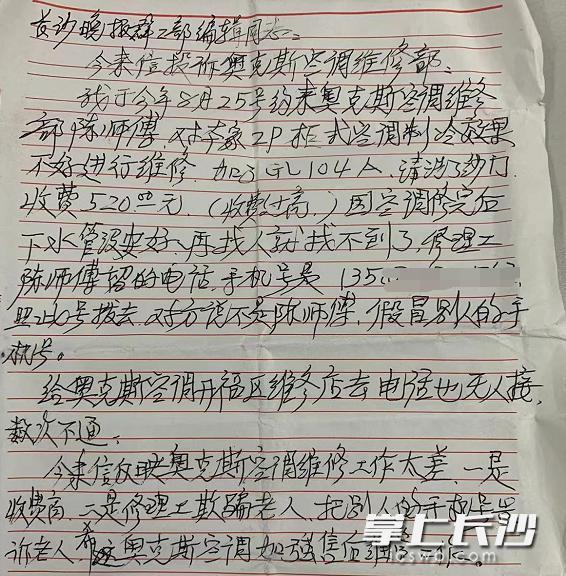 长沙晚报群工部编辑同志:
今来信投诉奥克斯空调维修部。
我于今年8月25号约来奥克斯空调维修
部陈师傅,对本家2P柜式空调制冷效果
不好进行维修.加了 104 清洗了
收费520.00元.(收费过高.)因空调修完后
下水管没安好,再找人就找不到了,修理工
陈师傅留的电话.手机号是 135
照此号拨去,对方说不是陈师傅,假冒别人的手
机号。
给奥克斯空调开福区维修店去电话也无人接,
数次不通、
今来信反映奥克斯空调维修工作太差,一是
收费高,二是修理工欺骗老人,把别人的手机号
诉老人,希 奥克斯空调加强售后
掌上长沙
cswbl.cn